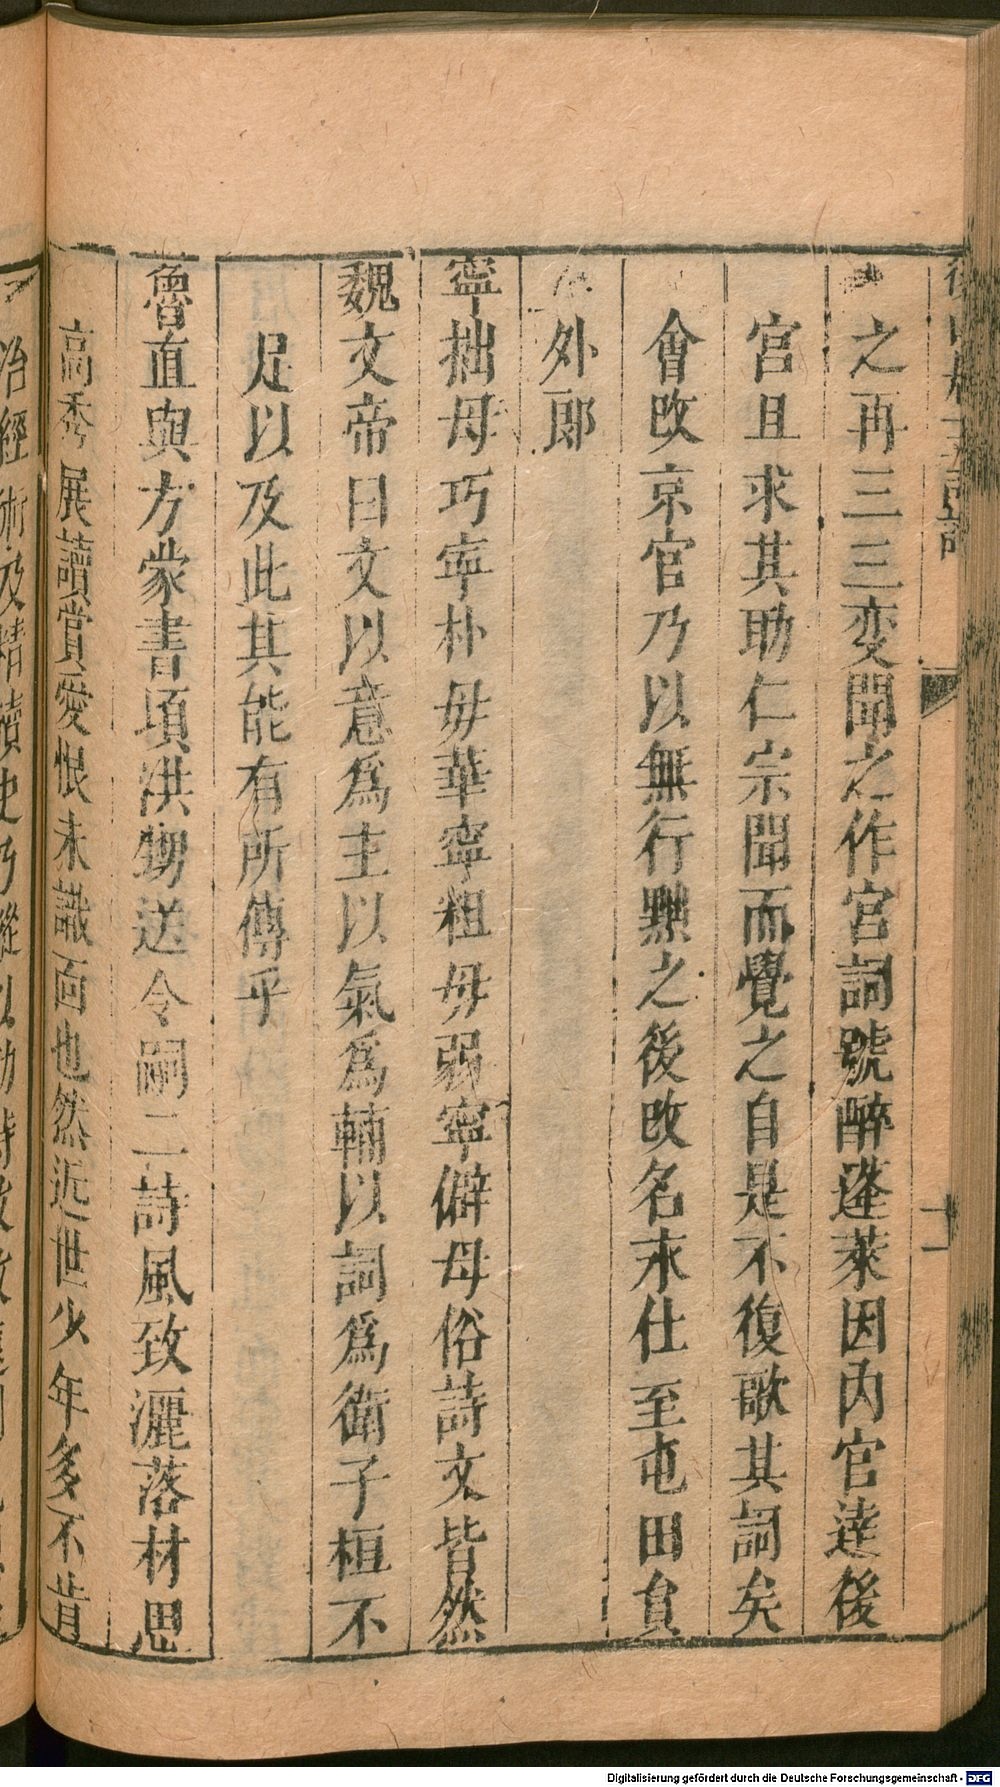 之再三三変聞之作宮詞號醉蓬萊因內官達後
宮且求其助仁宗聞而覺之自是不復歌其詞矣
會改京官乃以無行黜之後改名永仕至屯田貟
外郎
寧拙毋巧寧朴毋華寧粗毋弱寧僻毋俗詩文皆然
魏文帝曰文以意爲主以氣爲輔以詞爲衛子桓不
足以及此其能有所傳乎
魯直與方蒙書頃洪甥送令嗣二詩風致灑落材思
高秀展讀賞愛恨未識面也然近世少年多不肯
治經術及精讀史乃縱以助詩
十一
Digitalisierung gefördert durch die Deutsche Forschungsgemeinschaft - DFG